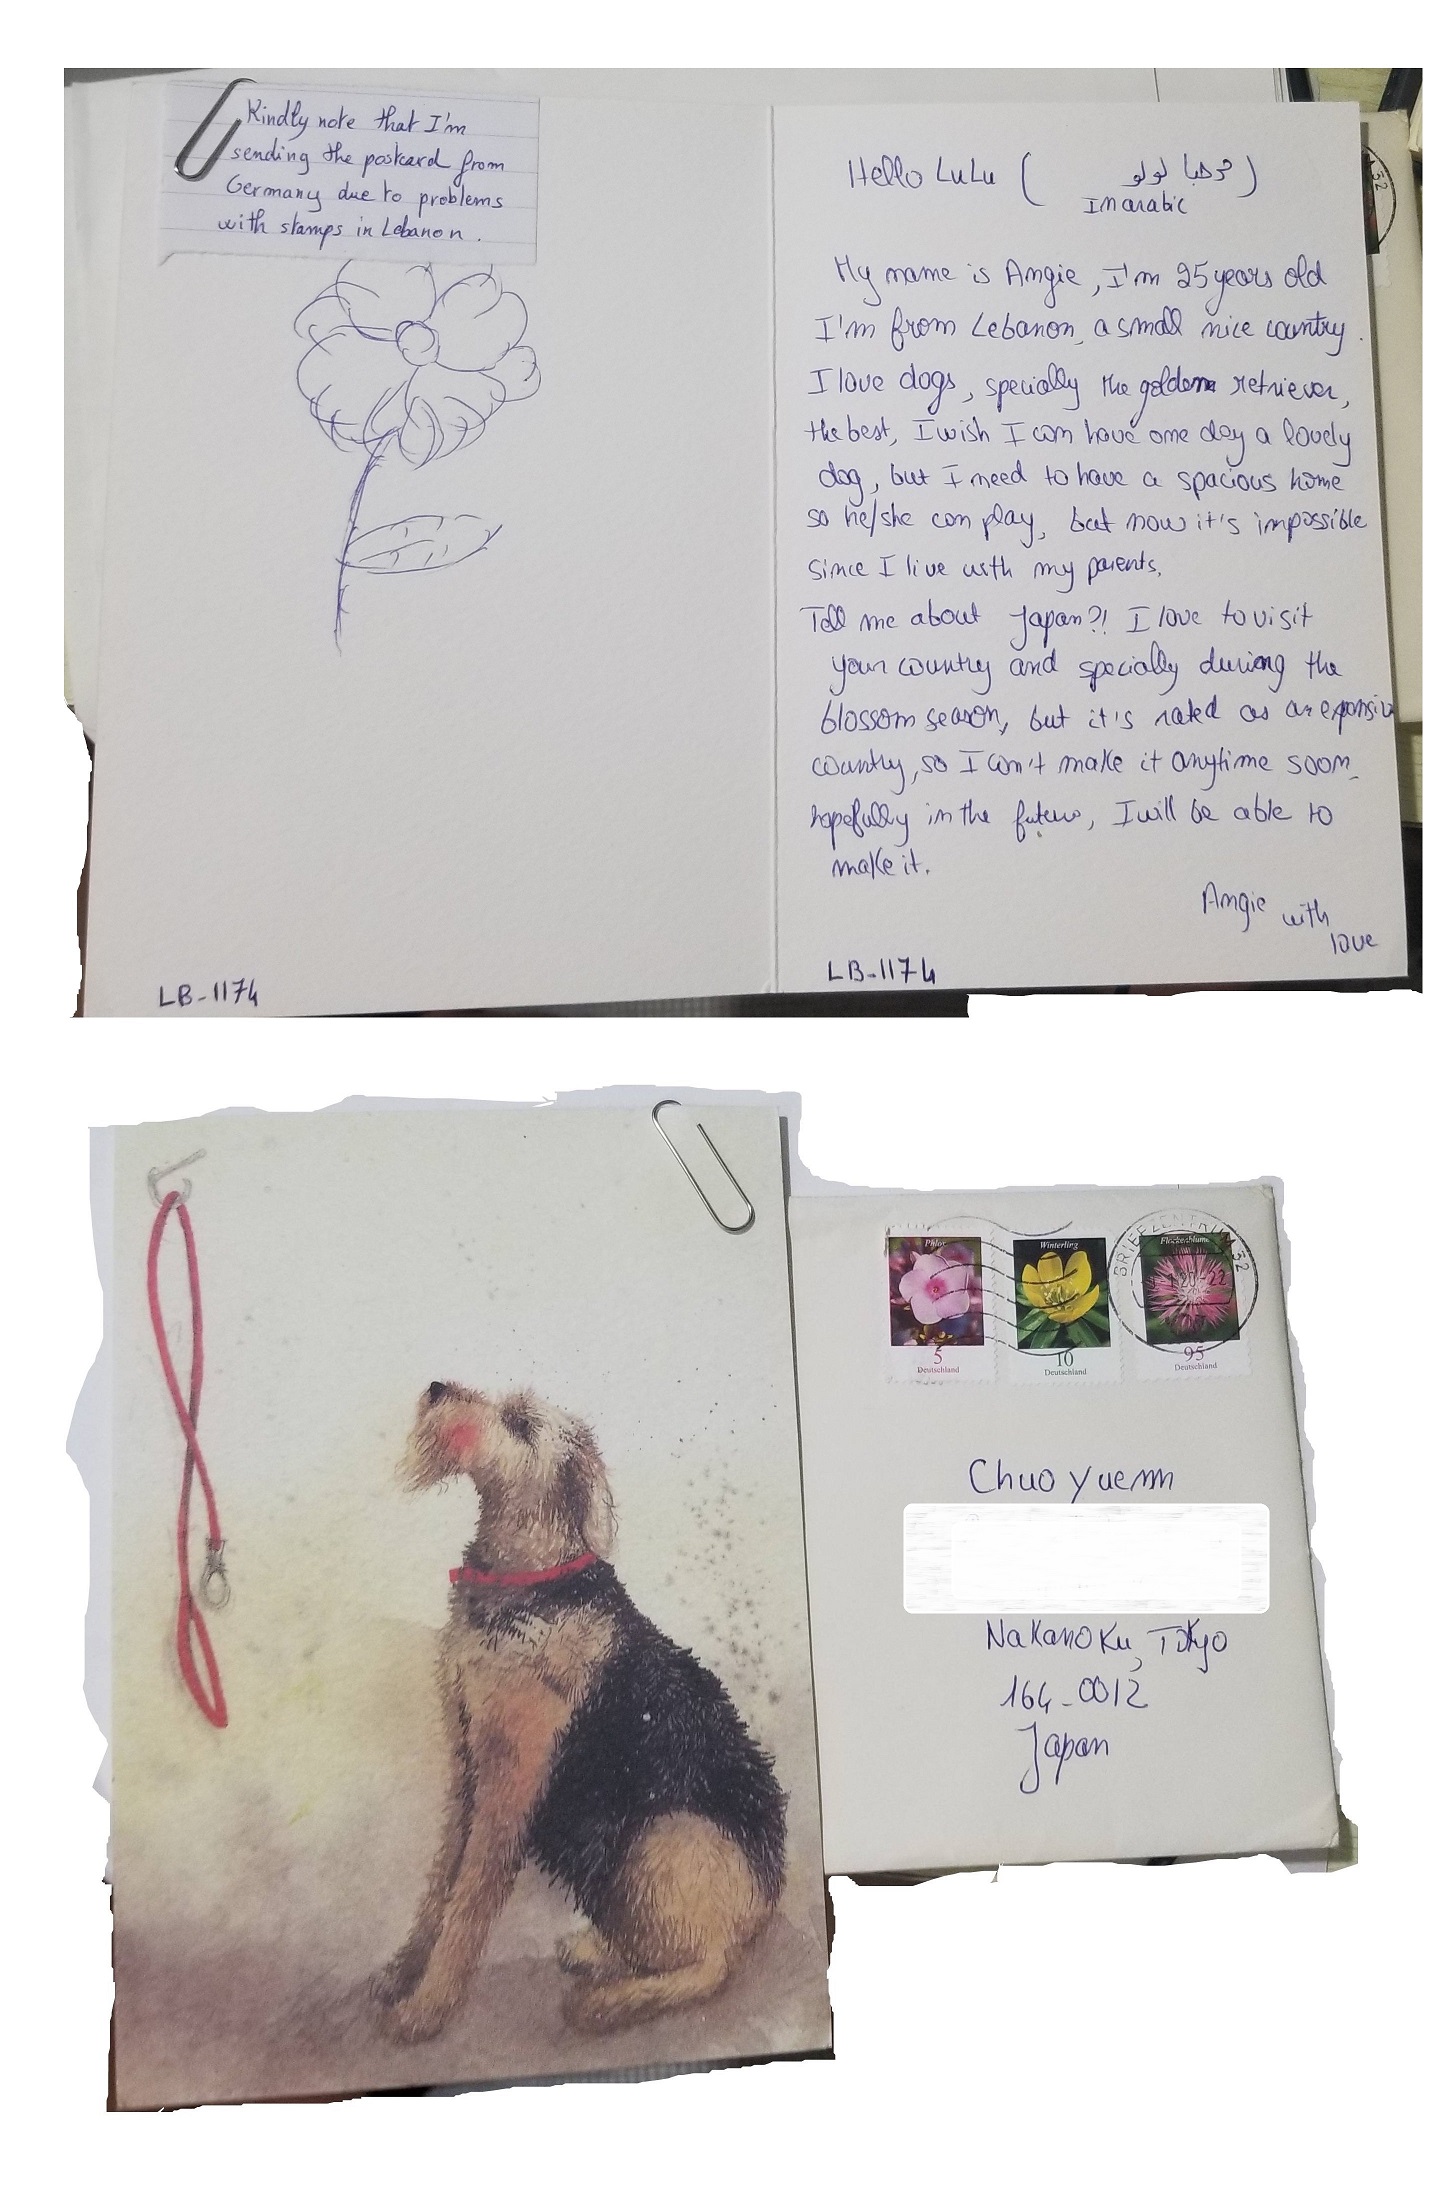 Kindly note that I'm
sending the postcard from
Germany due to problems
with stamps in Lebanon.
LB-1174
Hello LuLu ( مرحبا لولو )
In arabic
My name is Angie, I'm 25 years old
I'm from Lebanon, a small nice country.
I love dogs, specially the golden retriever,
the best, I wish I can have one day a lovely
dog, but I need to have a spacious home
so he/she can play, but now it's impossible
since I live with my parents.
Tell me about Japan?! I love to visit
your country and specially during the
blossom season, but it's rated as an expensive
country, so I can't make it anytime soon
hopefully in the future, I will be able to
make it.
Angie with
love
LB-1174
Phlox
5
Deutschland
Winterling
10
Deutschland
Flockenblume
95
Deutschland
BRIEFZENTRUM 32
Chuo Yuenn
Nakano Ku, Tokyo
164-0012
Japan